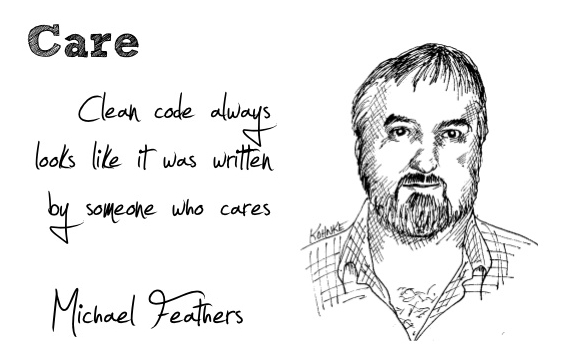 Care
Clean code always
looks like it was written
by someone who cares
Michael Feathers
KOHNKE